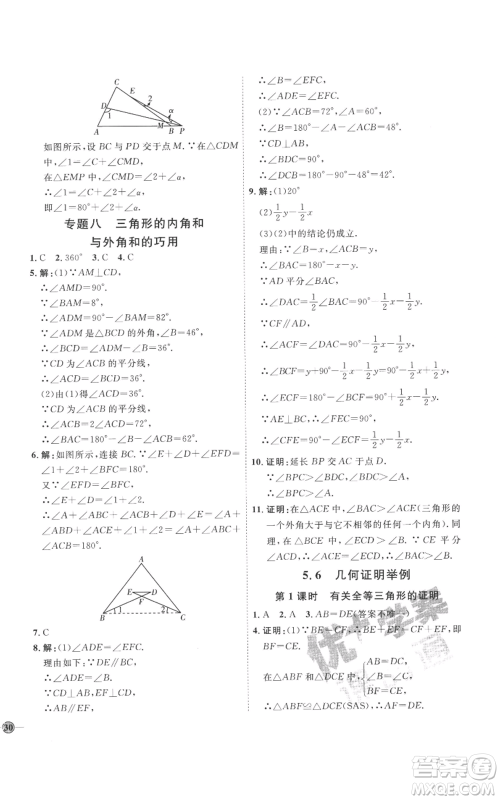 C
2
D
1
α
A
M
B
P
如图所示,设 BC 与 PD 交于点 M.∵在△CDM
中,∠1=∠C+∠CMD,
在△EMP 中,∠2=∠α+∠EMP,
∴∠1-∠C=∠2-∠α,
即∠1=∠C+∠2-∠α.
专题八 三角形的内角和
与外角和的巧用
1. C 2. 360° 3. C 4. C
5. 解:(1)∵AM⊥CD,
∴∠AMD=90°.
∵∠BAM=8°,
∴∠BAD=90°-8°=82°.
∵∠BAD 是△BCD 的外角,∠B=46°,
∴∠BCD=∠BAD-∠B=36°.
∵CD 为∠ACB 的平分线,
∴∠ACD=∠BCD=36°.
(2)由(1)得∠BCD=36°.
∵CD 为∠ACB 的平分线,
∴∠ACB=2∠BCD=72°,
∴∠BAC=180°-∠B-∠ACB=62°.
6. 解:如图所示,连接 BC.∵∠D+∠E+∠EFD=
∠1+∠2+∠BFC=180°,
又∵∠EFD=∠BFC,∴∠D+∠E=∠1+∠2,
∴∠A+∠ABD+∠ACE+∠D+∠E=∠A+
∠ABD+∠ACE+∠1+∠2=∠ABC+∠A+
∠ACB=180°.
A
E
D
F
1
2
B
C
7. C
8. 解:(1)∵AB⊥BD,CD⊥BD,
∴∠ABD=∠BDC=90°,
理由:∵∠ABD=90°,
∴AB⊥BD.
∵CD⊥BD,
∴AB∥CD.
∵AB∥EF,
∴CD∥EF,
∴∠B=∠EFC.
又∵∠ADE=∠EFC,
∴∠ADE=∠B.
(2)∵∠A=60°,
∴∠B=180°-∠A-90°=30°.
∵CD⊥AB,
∴∠CDB=90°,
∴∠DCB=180°-90°-30°=60°.
9. 解:(1)20°
(2) 1/2 y- 1/2 x
(3)(2)中的结论仍成立.
理由:∵∠B=x°,∠ACB=y°,
∴∠BAC=180°-x°-y°.
∵AD 平分∠BAC,
∴∠DAC= 1/2 ∠BAC=90°- 1/2 x°- 1/2 y°.
∵CF∥AD,
∴∠ACF=∠DAC=90°- 1/2 x°- 1/2 y°,
∴∠BCF=y°+90°- 1/2 x°- 1/2 y°=90°- 1/2 x°+ 1/2 y°,
∴∠ECF=180°-∠BCF=90°+ 1/2 x°- 1/2 y°.
∵AE⊥BC,∴∠AEC=90°,
∴∠CFE=90°-∠ECF= 1/2 y°- 1/2 x°.
10. 证明:延长 BP 交 AC 于点 D.
∴∠BPC>∠1,∠1>∠A,∴∠BPC>∠A.
11. 证明:∵∠ACD>∠BAC(三角形的
一个外角大于与它不相邻的任何一个内角).
CE 平分∠ACD,∴∠1=∠2.
∵∠BAC>∠1,∠2>∠B,∴∠BAC>∠B.
5.6 几何证明举例
第 1 课时 有关全等三角形的证明
1. A 2. A 3. AB=DE(答案不唯一)
4. 证明:∵BF=EC,∴BF+FC=EC+FC,
∴BC=EF.
在△ABC 和△DEF 中,
AB=DE,
∠B=∠E,
BC=EF,
∴△ABC≌△DEF(SAS),
∴∠A=∠D.
30